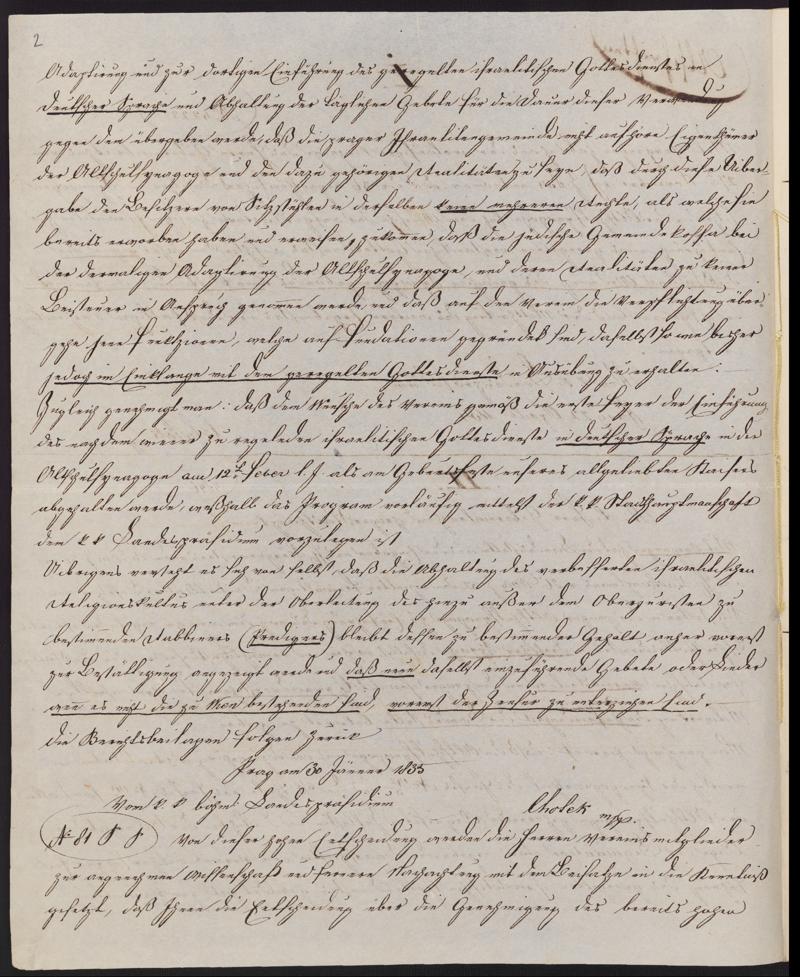 2
Adaptirung und zur dortigen Einführung des geregelten israelitischen Gottesdienstes in
deutscher Sprache und Abhaltung der täglichen Gebete für die Dauer dieser Verwendung
gegen dem übergeben werde, daß die prager Israelitengemeinde nicht aufhöre Eigenthümer
der Altschulsynagoge und den dazu gehörigen Realitäten zu seyn, daß durch diese Uiber-
gabe den Besitzern von Sitzstühlen in derselben keine mehreren Rechte, als welche sie
bereits erworben haben und erweisen, zukomen, daß die jüdische Gemeindekassa bei
der dermaligen Adaptirung der Altschulsynagoge, und deren Realitäten zu keiner
Beisteuer in Anspruch genomen werde, und daß auf den Verein die Verpflichtung über-
gehe jene Funkzionen, welche auf Fundationen gegründet sind, daselbst so wie bisher
jedoch im Einklange mit dem geregelten Gottesdienste in Ausübung zu erhalten:
Zugleich genehmigt man: daß dem Wunsche des Vereins gemäß die erste Feyer der Einführung
des nach dem zu regelnden israelitischen Gottesdienste in deutscher Sprache in der
Altschulsynagoge am 12t Feber l. J. als am Geburtsfeste unseres allgeliebten Kaisers
abgehalten werde, weßhalb das Program vorläufig mittelst der k k Stadthauptmanschaft
dem k k Landespräsidium vorzulegen ist
Uibrigens versteht es sich von selbst, daß die Abhaltung des verbesserten israelitischen
Religionskultus unter der Oberleitung des hiezu außer dem Oberjuristen zu
bestimmenden Rabbiners (Predigers) bleibt dessen zu bestimmender Gehalt anher vorerst
zur Bestättigung angezeigt werde und daß neue daselbst einzuführende Gebete oder Lieder
wie es nicht die zu Wien bestehenden sind, vorerst der Zensur zu unterziehen sind.
Die Berichtsbeilagen folgen zurück
Prag am 30 Jänner 1835
Vom k. k böhm Landespräsidium Chotek m/p.
No 81 P P Von dieser hohen Entscheidung werden die Herren Vereinsmitglieder
zur angenehmen Wissenschaft und fernern Nachachtung mit dem Beisatze in die Kenntniß
gesetzt, daß Ihnen die Entscheidung über die Genehmigung des bereits hohen